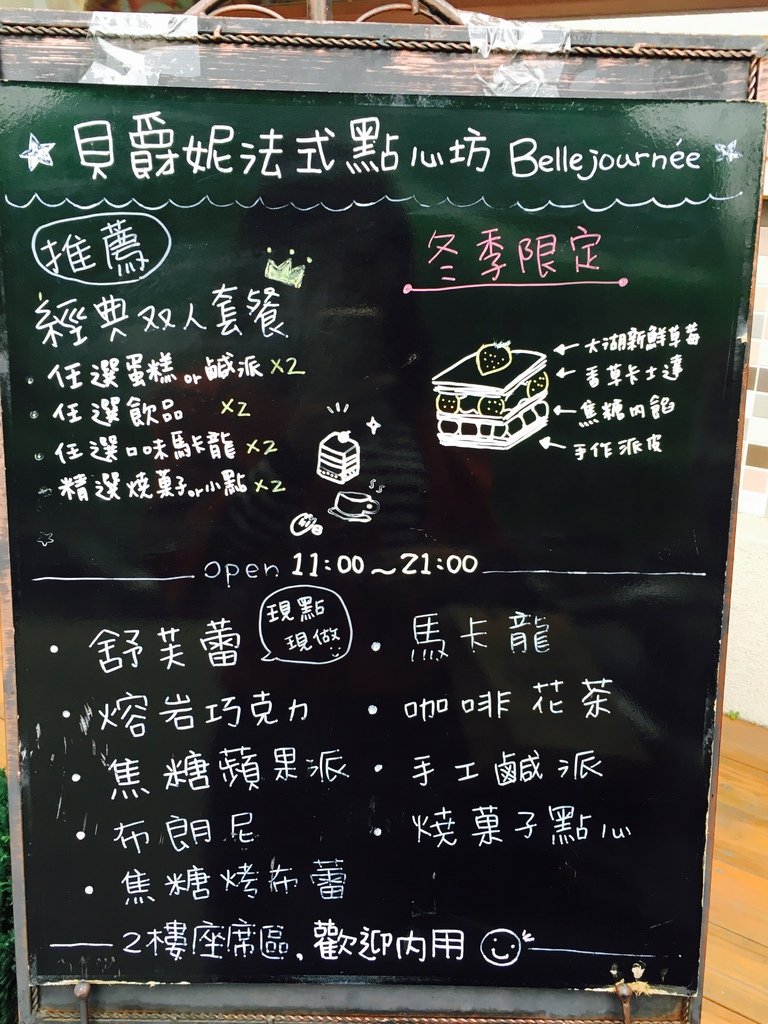 貝爵妮法式點心坊 Bellejournée
推薦
經典双人套餐
· 任選蛋糕or鹹派 x2
· 任選飲品 x2
· 任選口味馬卡龍 x2
· 精選燒菓子or小點 x2
冬季限定
← 大湖新鮮草莓
← 香草卡士達
← 焦糖內餡
← 手作派皮
open 11:00~21:00
· 舒芙蕾
現點
現做
· 熔岩巧克力
· 焦糖蘋果派
· 布朗尼
· 焦糖烤布蕾
· 馬卡龍
· 咖啡花茶
· 手工鹹派
· 燒菓子點心
2樓座席區,歡迎內用